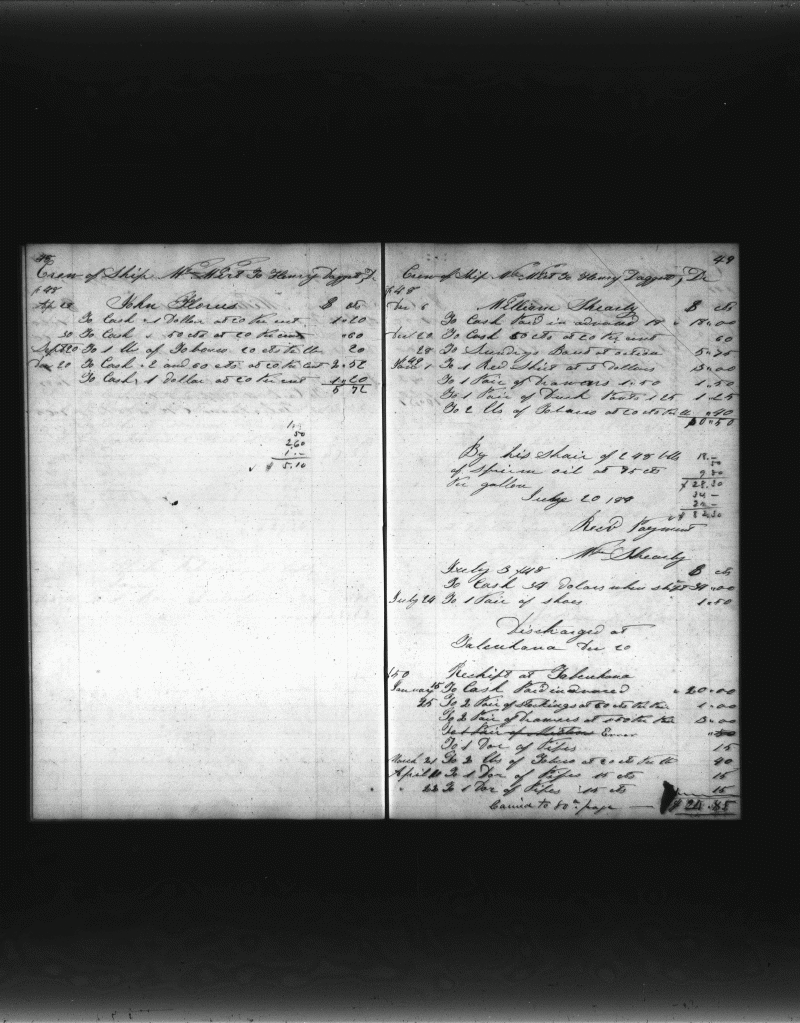 48
Crew of Ship Wm Wirt To Henry Daggett, Dr
1848
Ap 28 John Flores $ cts
To Cash 1 dollar at 20 per cent 1.20
30 To Cash 50 cts at 20 per cent .60
Sept 20 To 1 lb of Tobacco 20 cts per lb 20
Dec 20 To Cash 2 and cts at 20 per cent 2.52
To Cash 1 dollar at 20 per cent 1.20
5 72
50
2.60
1.-
$ 5.10
49
Crew of Ship Wm Wirt To Henry Daggett, Dr
1848
Dec 5 William Shearly $ cts
To Cash Paid in advance 18 18.00
Dec 20 To Cash 50 cts at 20 per cent 60
28 To Sundry 5.75
1849
1 To 1 Red Shirt at 3 Dollars 3.00
To 1 Pair of Drawers 1.50 1.50
To 1 Pair of Duck 1.25 1.25
To 2 lbs of Tobacco at 20 cts per lb .40
30.50
By his Shair of 248 bbls 18.-
of Sperm oil at 85 cts 50
Per gallon 9 80
$ 28.30
July 20 34 -
$ 82.30
Recd Payment
Wm Shearly
July 3 $ cts
To Cash 34 dolars when 34.00
July 24 To 1 Pair of shoes 1.50
Discharged at
Talcahuana Dec 20
Reshipt at Talcahuana
January 15 To Cash Paid in advance 20.00
25 To 2 Pair of Stockings at 50 cts per 1.00
To 2 Pair of Drawers at 150 per 3.00
To 1 Pair of Error
To 1 Doz of Pipes 15
March 21 To 2 lbs of Tobaco at 20 cts per lb 40
April To 1 Doz of Pipes 15 cts 15
22 To 1 Doz of Pipes 15 cts 15
Carried to 80th page